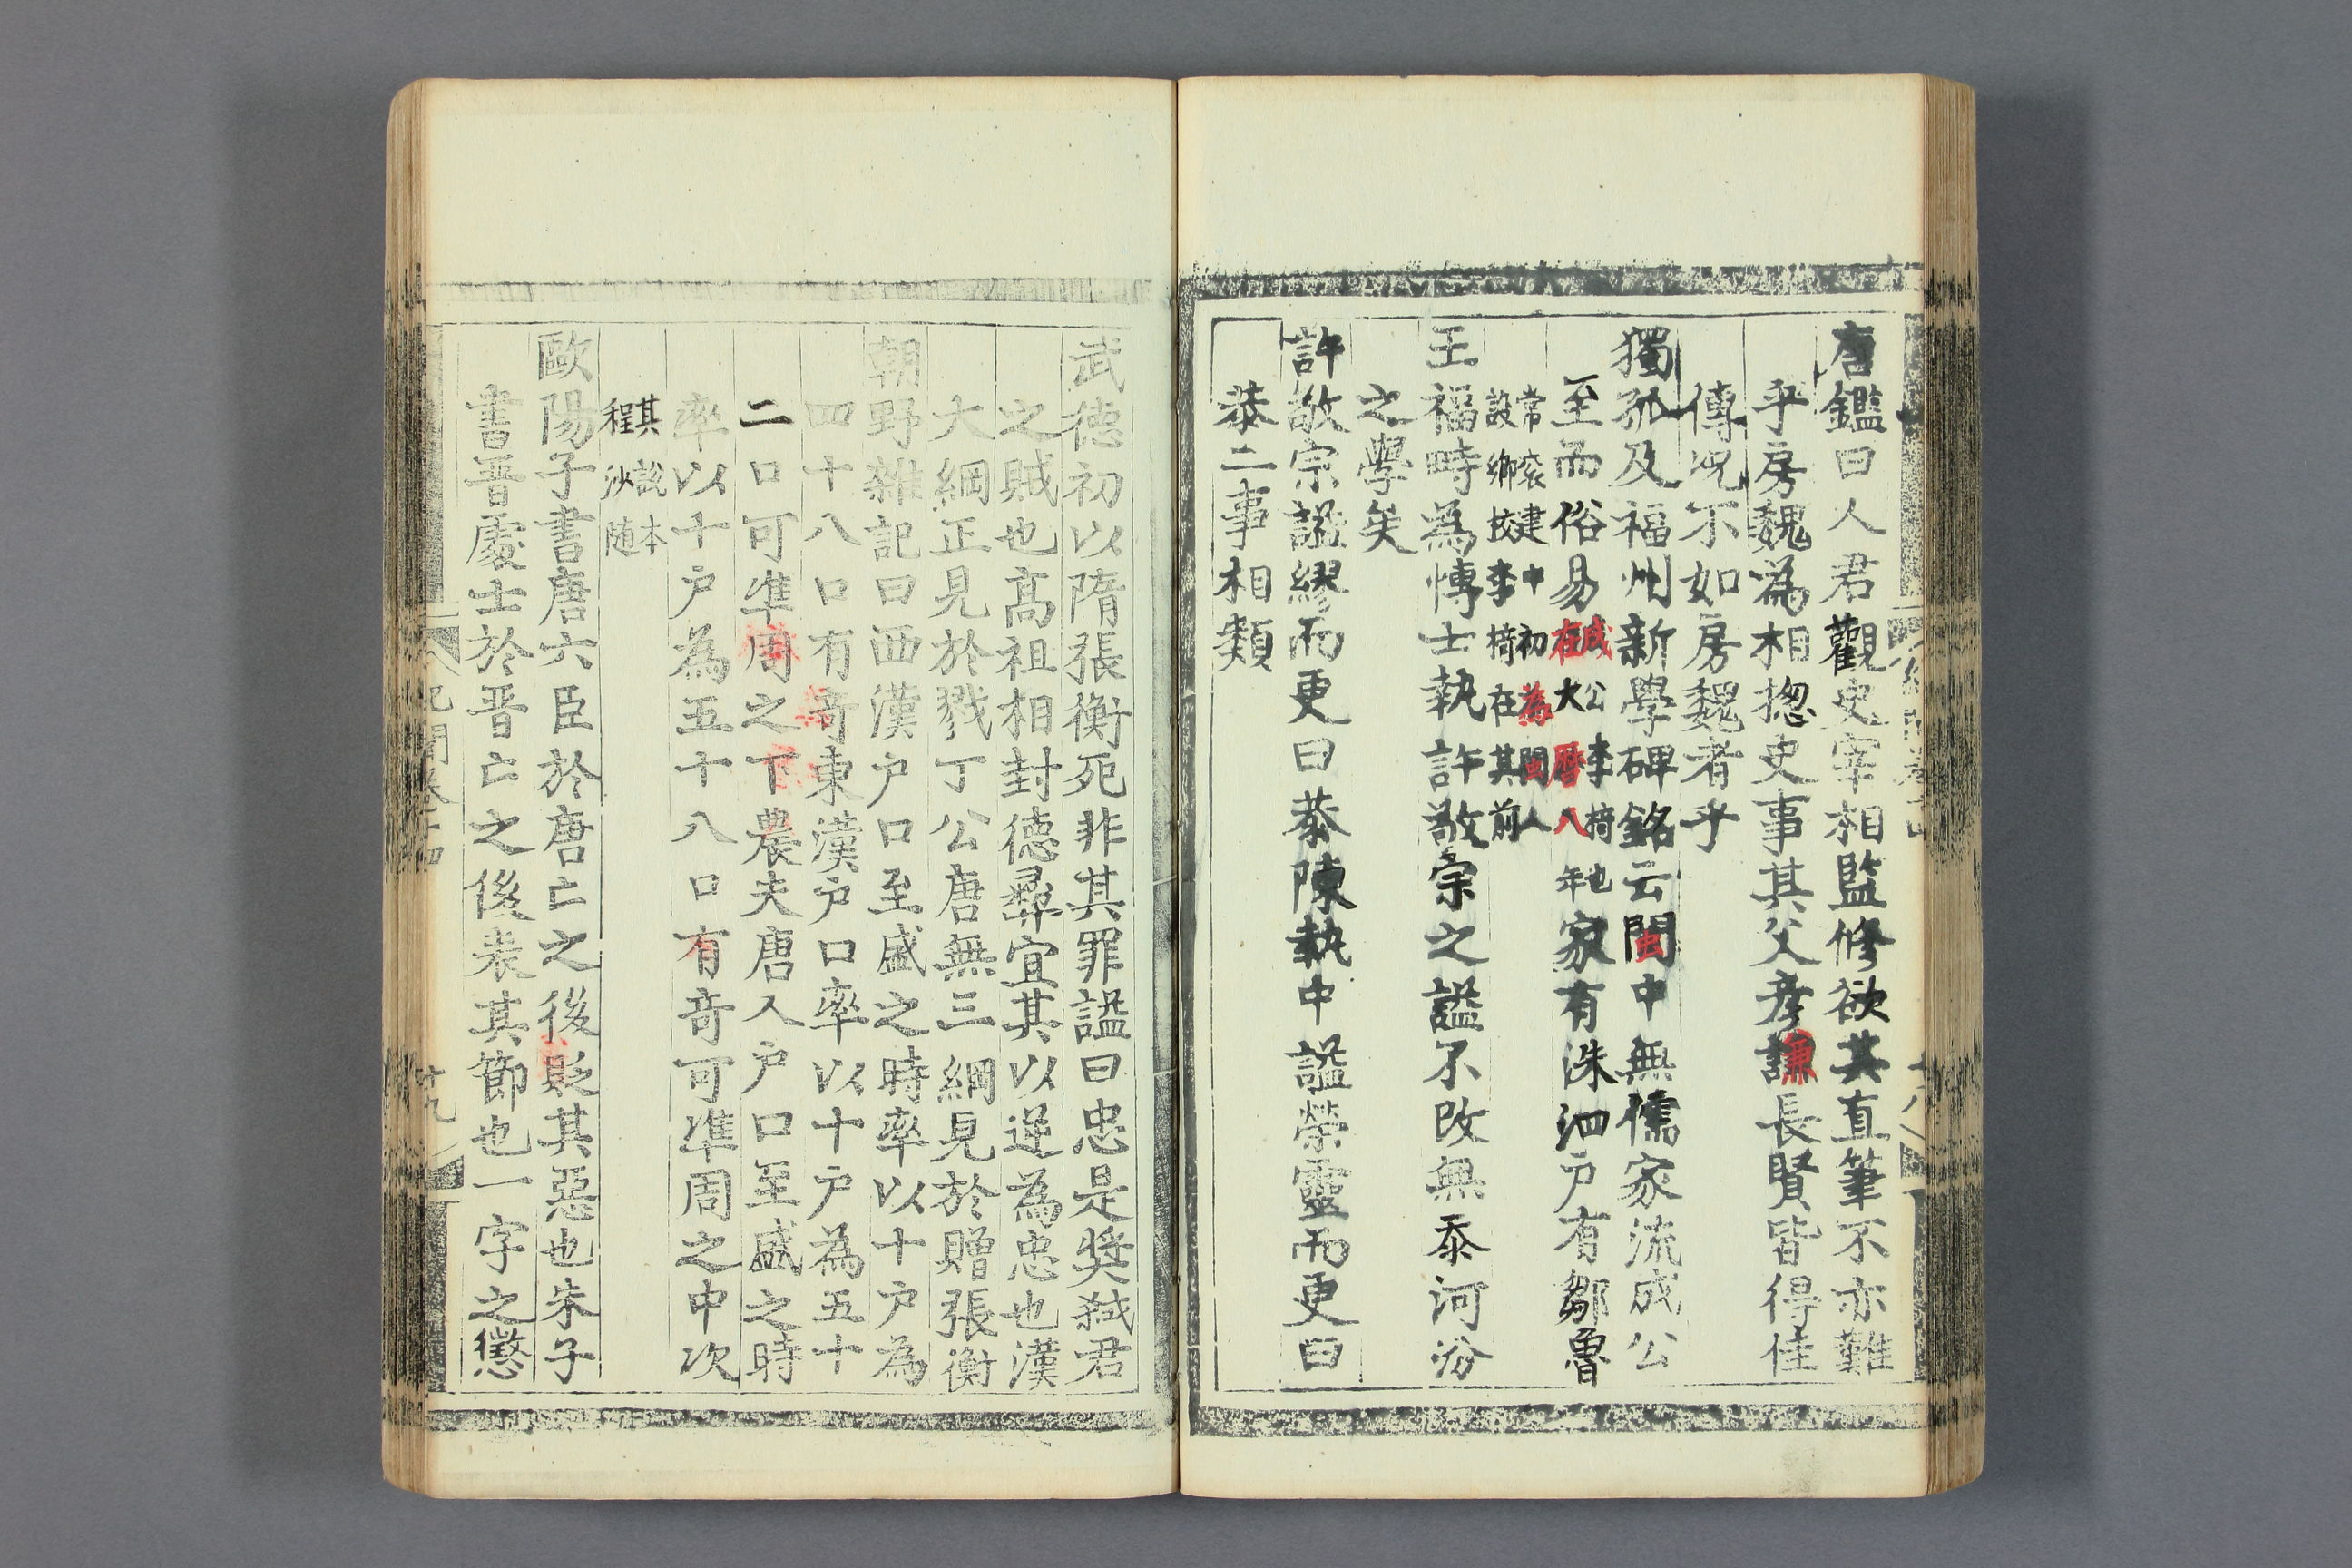 唐鑑曰人君觀史宰相監修欲其直筆不亦難
乎房魏為相揔史事其父彥謙長賢皆得佳
傳況不如房魏者乎
獨孤及福州新學碑銘云閩中無儒家流成公
至而俗易成公李椅也在大曆八年家有洙泗户有鄒魯
常衮建中初為閩人設鄉校李椅在其前
王福畤為博士執許敬宗之謚不改無忝河汾
之學矣
許敬宗謚繆而更曰恭陳執中謚榮靈而更曰
恭二事相類
武德初以隋張衡死非其罪謚曰忠是奬弑君
之賊也高祖相封德彛宜其以逆為忠也漢
大綱正見於戮丁公唐無三綱見於贈張衡
朝野雜記曰西漢户口至盛之時率以十户為
四十八口有奇東漢户口率以十户為五十
二口可準周之下農夫唐人户口至盛之時
率以十户為五十八口有奇可準周之中次
其說本程沙随
歐陽子書唐六臣於唐亡之後貶其惡也朱子
書晋處士於晋亡之後表其節也一字之懲
紀聞卷十四
十九